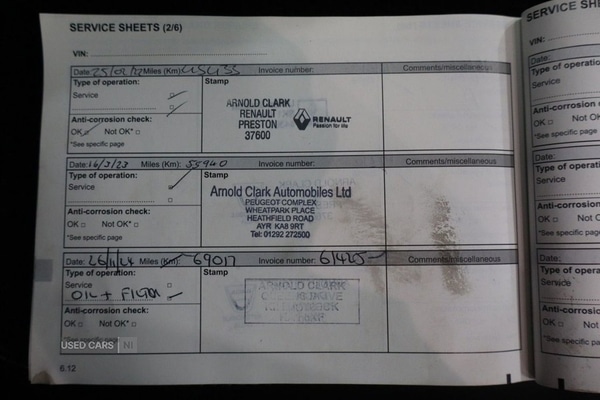 SERVICE SHEETS (2/6)
VIN:
Date: Miles (Km): Invoice number: Comments/miscellaneous
Type of operation: Stamp
Service
ARNOLD CLARK
RENAULT
PRESTON
37600
RENAULT
Passion for life
Anti-corrosion check:
OK Not OK*
*See specific page
Date: 16/3/23 Miles (Km): 55940 Invoice number: Comments/miscellaneous
Type of operation: Stamp
Service
Arnold Clark Automobiles Ltd
PEUGEOT COMPLEX
WHEATPARK PLACE
HEATHFIELD ROAD
AYR KA8 9RT
Tel: 01292 272500
Anti-corrosion check:
OK Not OK*
*See specific page
Date: Miles (Km): 69017 Invoice number: 61425 Comments/miscellaneous
Type of operation: Stamp
Service
OIL + FILTER
ARNOLD CLARK
Anti-corrosion check:
OK Not OK*
USED CARS NI
6.12
SERVICE SH
VIN:
Date:
Type of operation
Service
Anti-corrosion
OK Not
*See specific page
Date:
Type of operat
Service
Anti-corrosion
OK Not O
*See specific page
Date:
Type of opera
Service
Anti-corrosion
OK Not